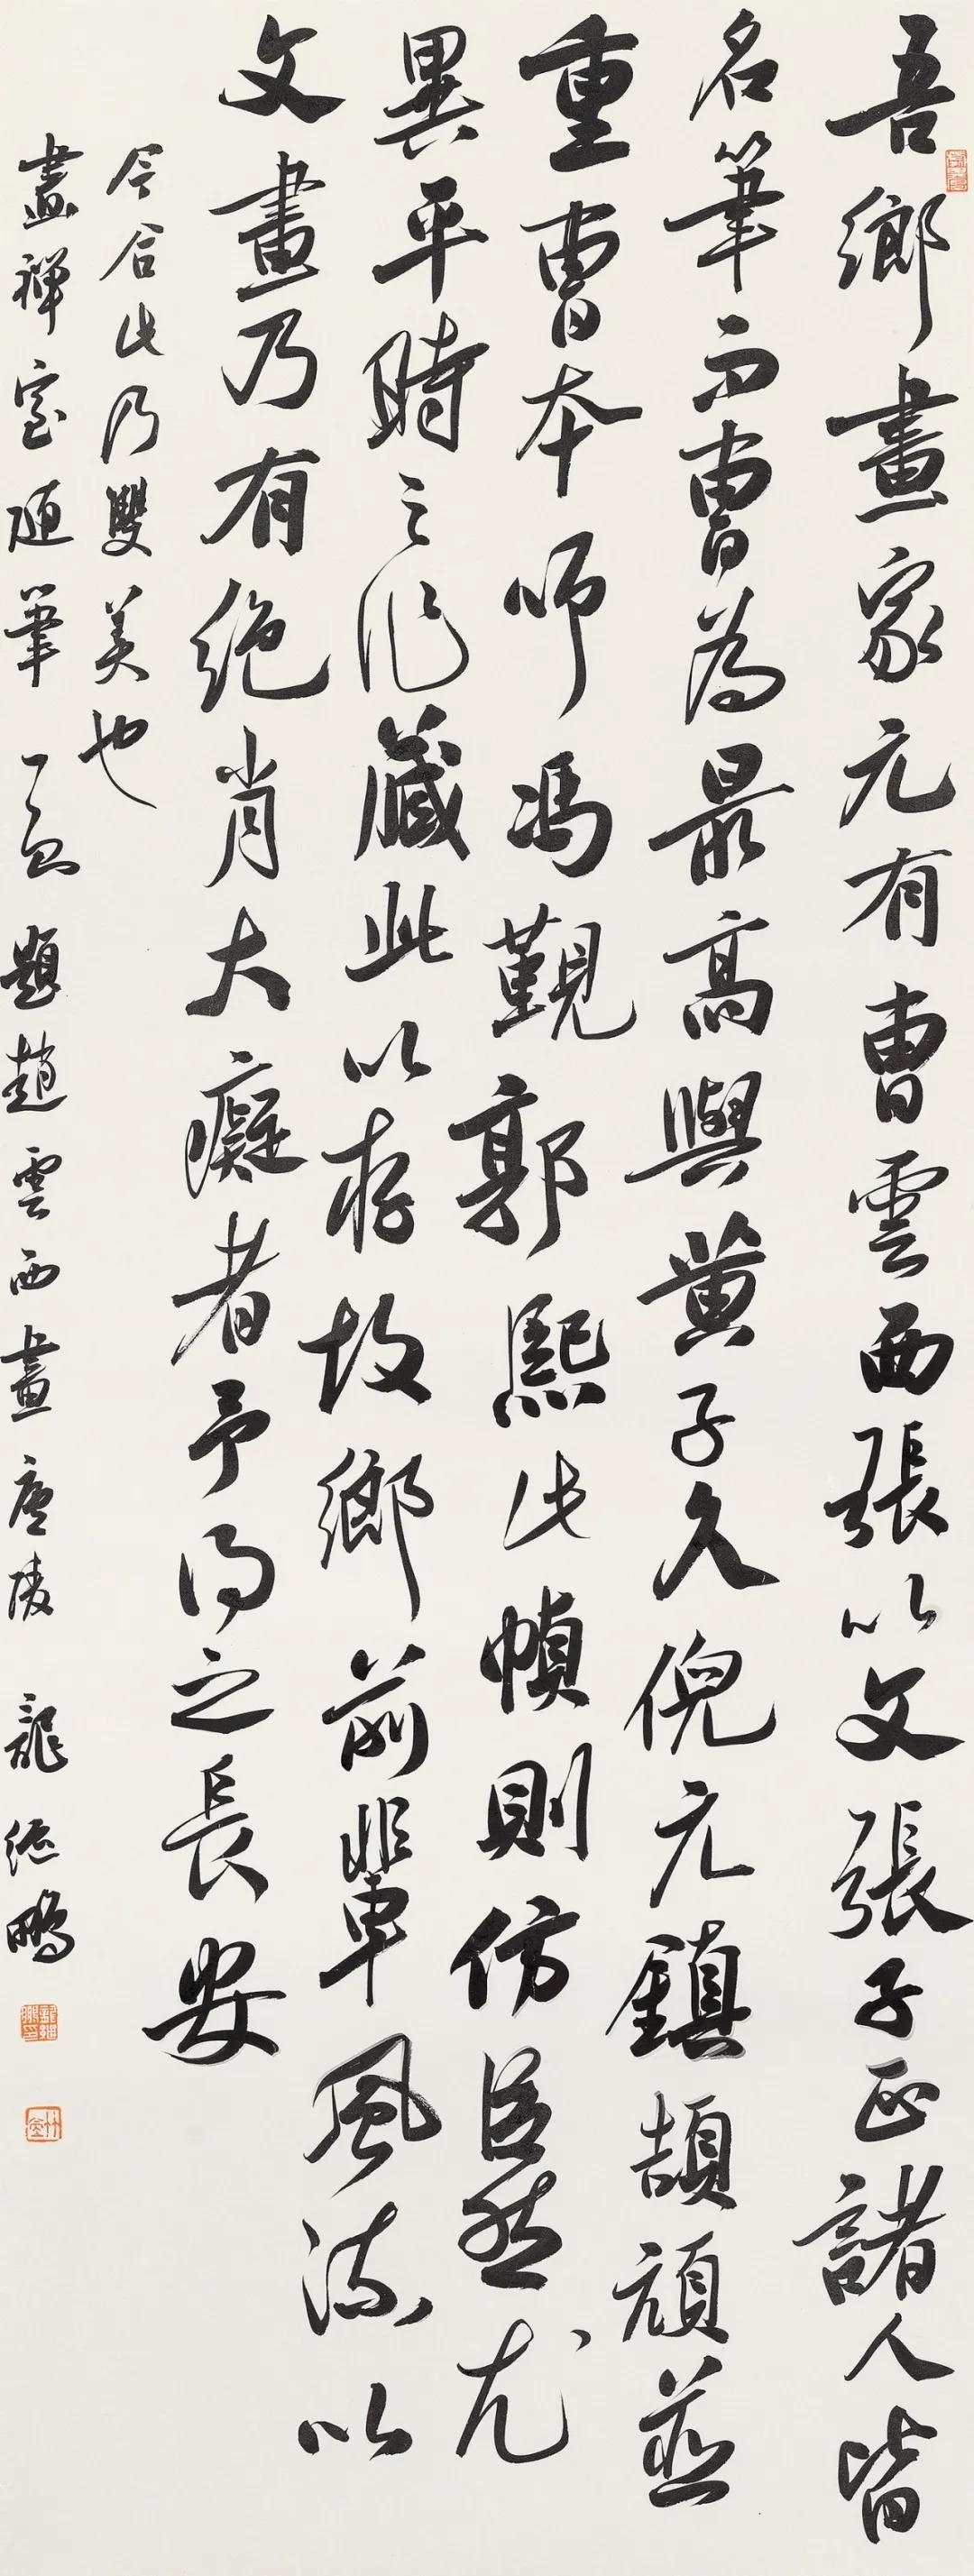 吾鄉畫家元有曹雲西張以文張子正諸人皆
名筆而曹為最高與黃子久倪元鎮頡頏並
重曹本師馮覲郭熙此幀則仿巨然尤
異平時之作藏此以存故鄉前輩風流以
文畫乃有絕肖大癡者予得之長安
今合此乃雙美也
畫禪室隨筆一則 題趙雲西畫 廬陵 龍緒鵬